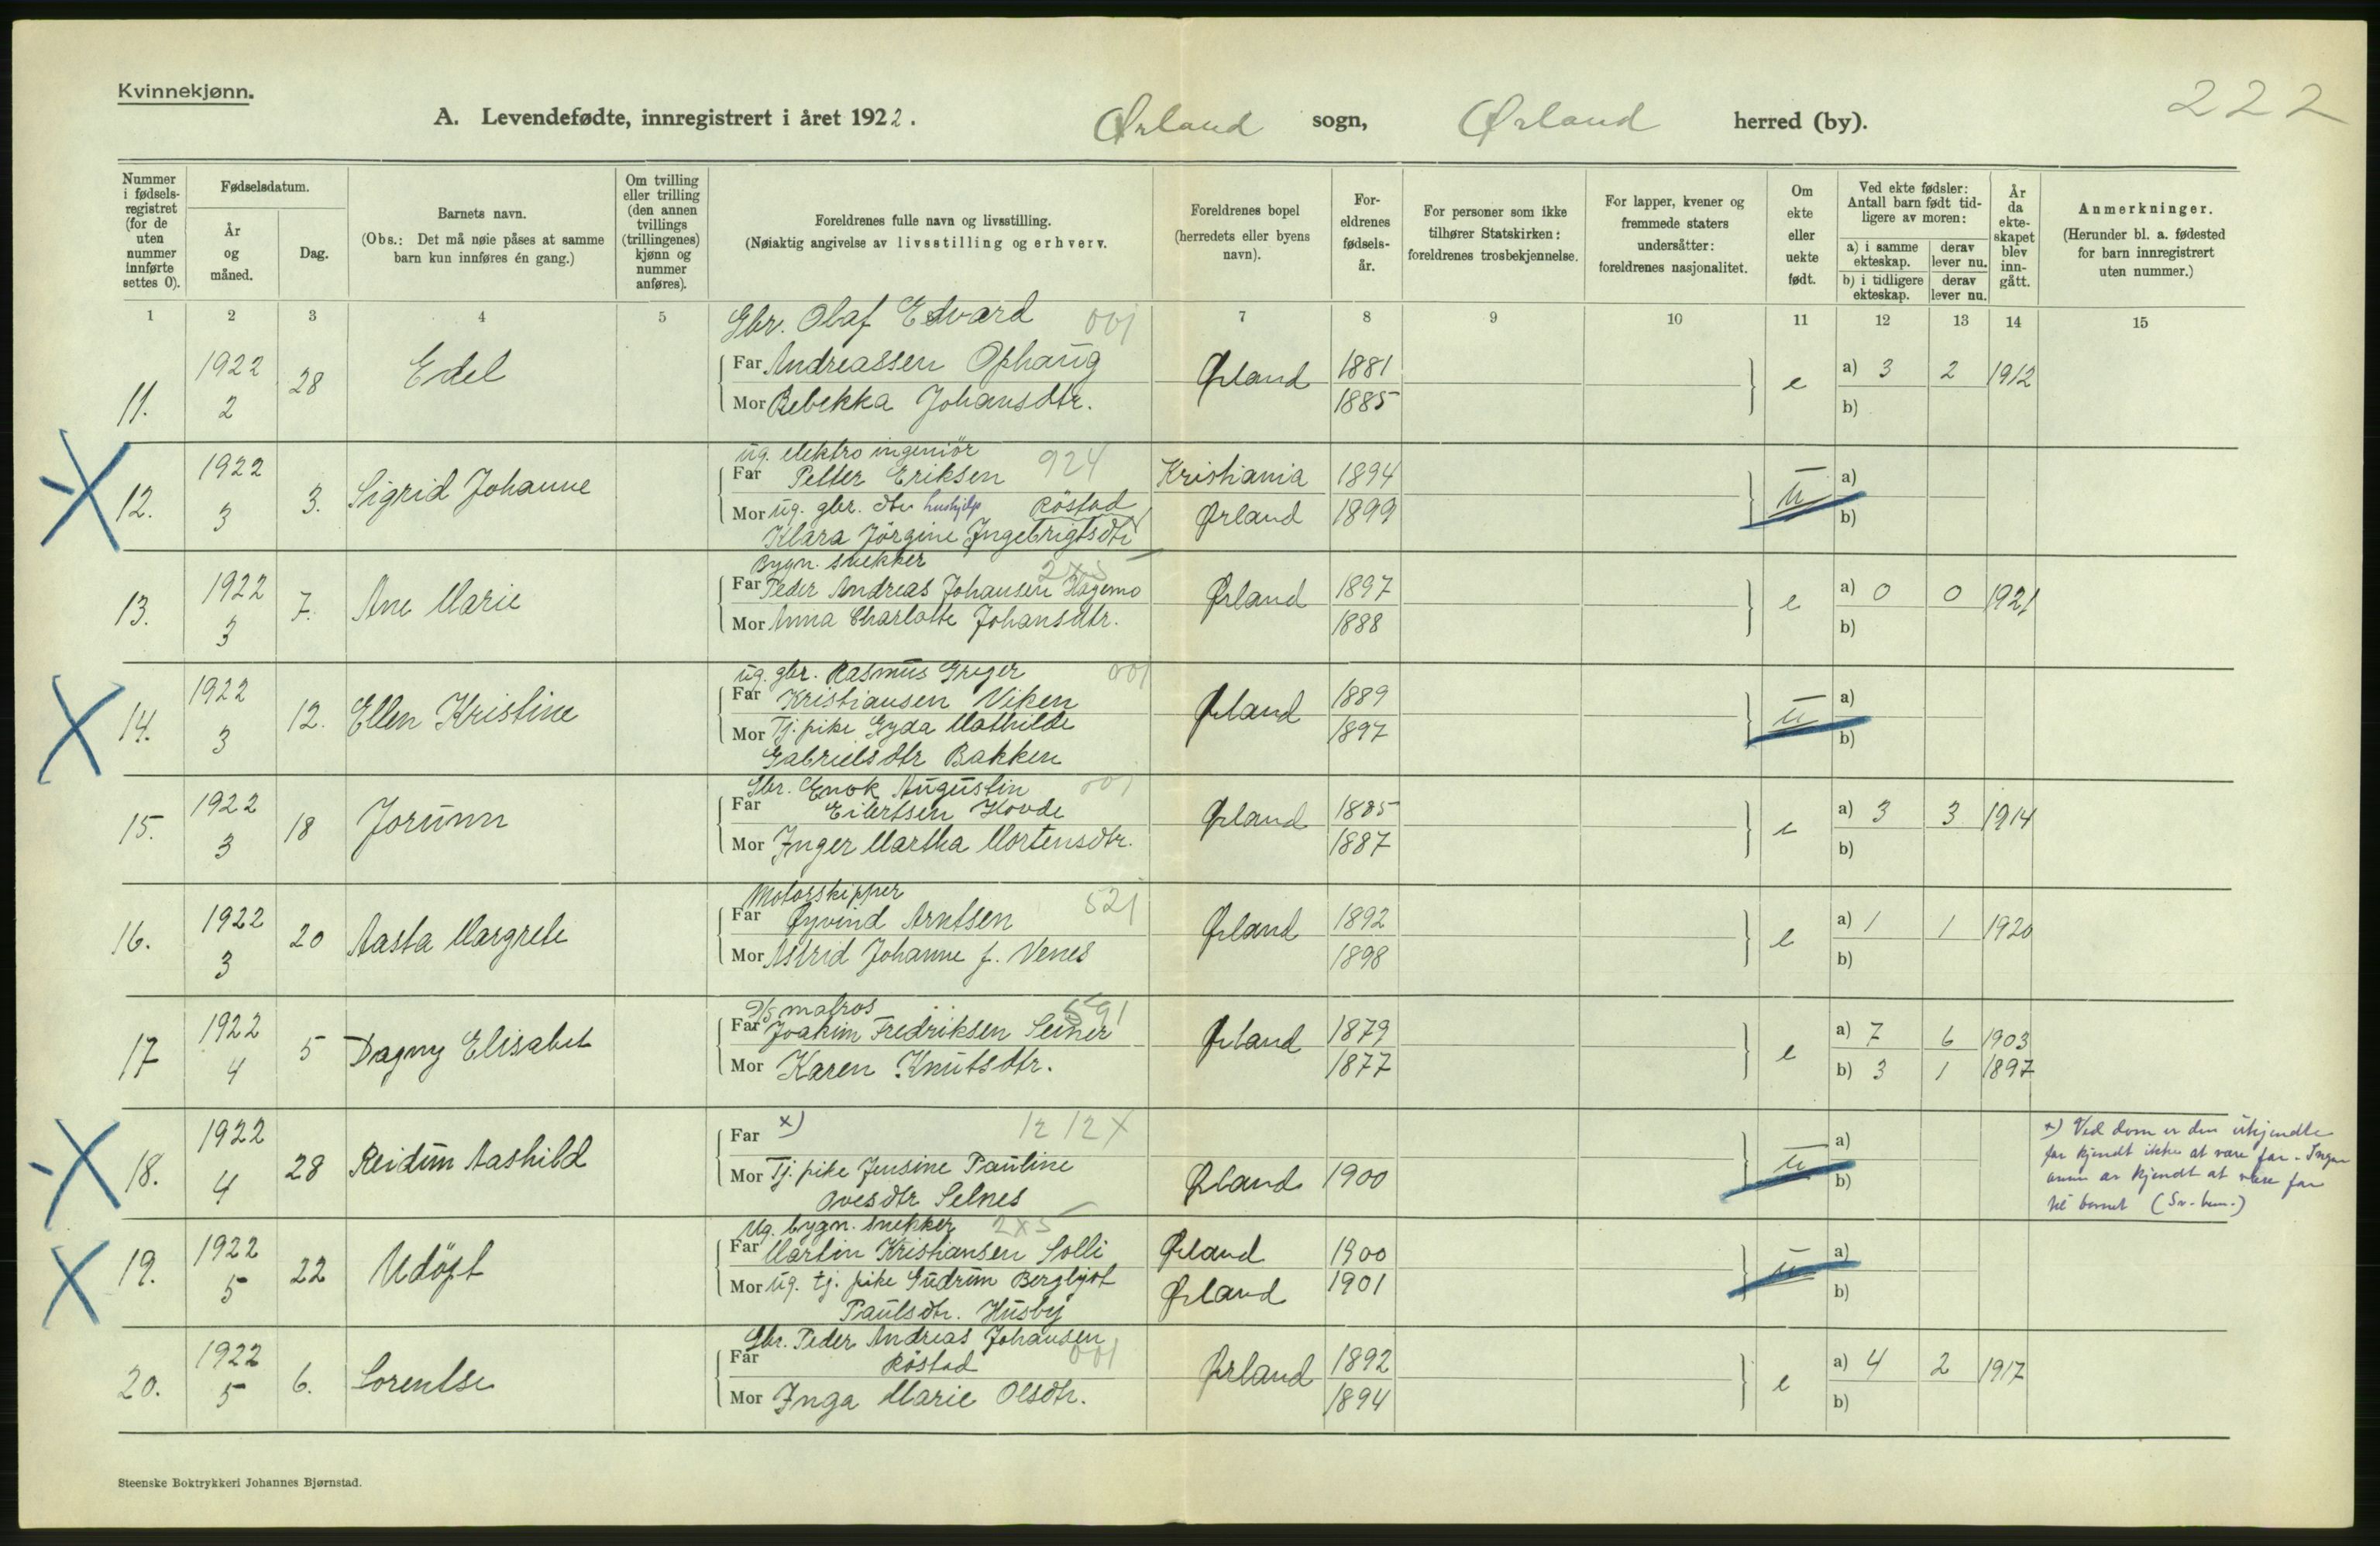 Kvinnekjønn.
222
A. Levendefødte, innregistrert i året 1922. Ørland sogn, Ørland herred (by).
Nummer i fødsels-registret (for de uten nummer innførte settes 0).
Fødselsdatum.
År og måned.
Dag.
Barnets navn.
(Obs.: Det må nøie påses at samme barn kun innføres én gang.)
Om tvilling eller trilling (den annen tvillings (trillingenes) kjønn og nummer anføres).
Foreldrenes fulle navn og livsstilling.
(Nøiaktig angivelse av livsstilling og erhverv.
Foreldrenes bopel (herredets eller byens navn).
For-eldrenes fødsels-år.
For personer som ikke tilhører Statskirken: foreldrenes trosbekjennelse.
For lapper, kvener og fremmede staters undersåtter: foreldrenes nasjonalitet.
Om ekte eller uekte født.
Ved ekte fødsler: Antall barn født tid-ligere av moren:
a) i samme ekteskap. derav lever nu.
b) i tidligere ekteskap. derav lever nu.
År da ekte-skapet blev inn-gått.
Anmerkninger.
(Herunder bl. a. fødested for barn innregistrert uten nummer.)
1 2 3 4 5 7 8 9 10 11 12 13 14 15
Gbr. Olaf Edvard 001
11. 1922 2 28 Edel Far Andreassen Ophaug Ørland 1881 e a) 3 2 1912
Mor Bebekka Johansdtr. 1885 b)
ug. elektro ingeniör 924
12. 1922 3 3. Sigrid Johanne Far Petter Eriksen Kristiania 1894 u a)
Mor ug. gbr. dtr hushjelp Röstad Ørland 1899 b)
Klara Jörgine Ingebrigtsdtr
Bygn. snekker 2x5
13. 1922 3 7. Ane Marie Far Peder Andreas Johansen Hagemo Ørland 1897 e a) 0 0 1921
Mor Anna Charlotte Johansdtr. 1888 b)
ug. gbr. Rasmus Greger 001
14. 1922 3 12. Ellen Kristine Far Kristiansen Viken Ørland 1889 u a)
Mor Tj. pike Gyda Mathilde 1897 b)
Gabrielsdtr Bakken
Gbr. Enok Augustin 001
15. 1922 3 18 Jorunn Far Eilertsen Hovde Ørland 1885 e a) 3 3 1914
Mor Inger Martha Mortensdtr. 1887 b)
Motorskipper 521
16. 1922 3 20 Aasta Margrete Far Øyvind Arntsen Ørland 1892 e a) 1 1 1920
Mor Astrid Johanne f. Venes 1898 b)
D/S matros 591
17 1922 4 5 Dagny Elisabet Far Joakim Fredriksen Seiner Ørland 1879 e a) 7 6 1903
Mor Karen Knutsdtr. 1877 b) 3 1 1897
18. 1922 4 28 Reidun Aashild Far x) 12 12 X u a)
Mor Tj. pike Jensine Pauline Ørland 1900 b)
Ovesdtr Selnes
x) Ved dom er den utkjendte
far kjendt ikke at være far. Ingen
annen er kjendt at være far
til barnet (Sv. bem.)
Ug. bygn. snekker 2x5
19. 1922 5 22 Udöpt Far Martin Kristiansen Solli Ørland 1900 u a)
Mor ug. tj. pike Gudrun Bergljot Ørland 1901 b)
Paulsdtr. Husby
Gbr. Peder Andreas Johansen
20. 1922 5 6. Lorentse Far Röstad 001 Ørland 1892 e a) 4 2 1917
Mor Inga Marie Olsdtr. 1894 b)
Steenske Boktrykkeri Johannes Bjørnstad.